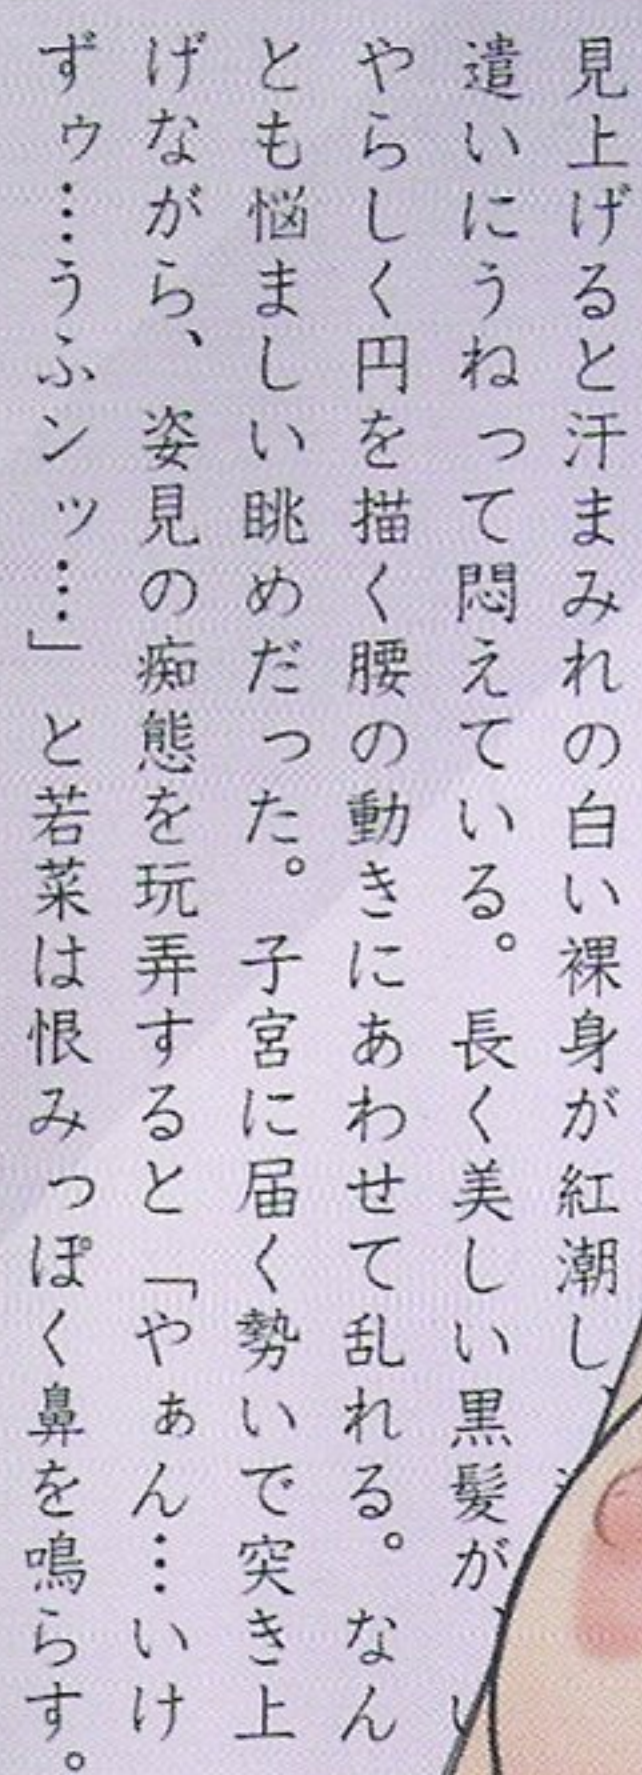 見上げると汗まみれの白い裸身が紅潮し、
遣いにうねって悶えている。長く美しい黒髪が、
やらしく円を描く腰の動きにあわせて乱れる。なん
とも悩ましい眺めだった。子宮に届く勢いで突き上
げながら、姿見の痴態を玩弄すると「やぁん…いけ
ずゥ…うふンッ…」と若菜は恨みっぽく鼻を鳴らす。